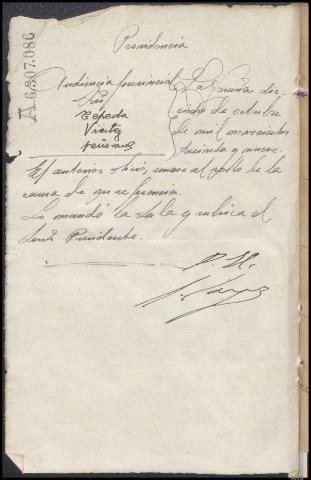 A6,307,086
Providencia
Audiencia provincial
Sres
Cepeda
Viritez
Señorans
La Coruña die-
ciocho de octubre
de mil novecientos
treinta y nueve.
El anterior oficio, unase al rollo de la
causa de su referencia.
Lo mandó la Sala y rubrica el
Señor Presidente.